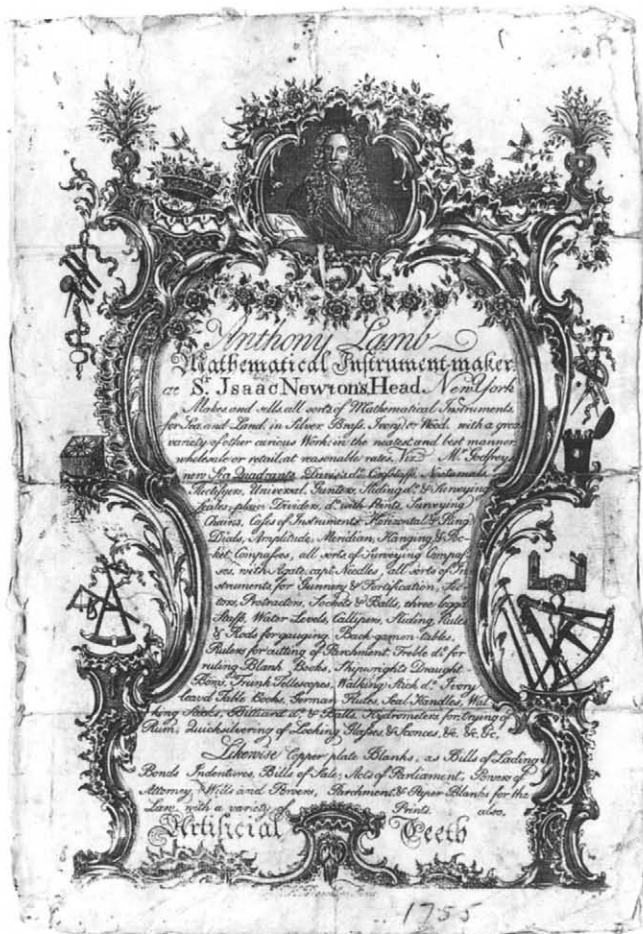 Anthony Lamb
Mathematical Instrument-maker.
at Sr. Isaac Newton's Head New York
Makes and sells all sorts of Mathematical Instruments,
for Sea and Land, in Silver, Brass, Ivory, or Wood, with a great
variety of other curious Work: in the neatest and best manner,
wholesale or retail, at reasonable rates, Viz. Mr. Godfreys
new Sea Quadrants, Davis's do. Crosstaffs, Nocturnals
Rectifyers, Universal, Gunters, Sliding do. & Surveying
Scales, plain Dividers, do. with Points, Surveying
Chains, Cases of Instruments, Horizontal & Ring
Dials, Amplitude, Meridian, Hanging & Poc-
ket Compasses, all sorts of Surveying Compas-
ses, with Agate capt Needles, all sorts of In-
struments for Gunnery & Fortification, Sec-
tors, Protractors, Sockets & Balls, three legg'd
Staffs, Water Levels, Callipers, Sliding Rules
& Rods for gauging. Back-gamon-tables,
Rulers for cutting of Parchment Treble do. for
ruling Blank Books, Shipwrights Draught-
Bows, Trunk Tellescopes, Walking Stick do. Ivory
leav'd Table Books, German Flutes, Seal Handles, Wal-
king Sticks, Billiard do. & Balls, Hydrometers for trying of
Rum, Quicksilvering of Looking Glasses & Sconces, &c. &c. &c.
Likewise Copper plate Blanks, as Bills of Lading
Bonds Indentures, Bills of Sale, Acts of Parliament, Powers of
Attorney, Wills and Powers, Parchment & Paper Blanks for the
Law, with a variety of Prints. also,
Artificial Teeth
1755